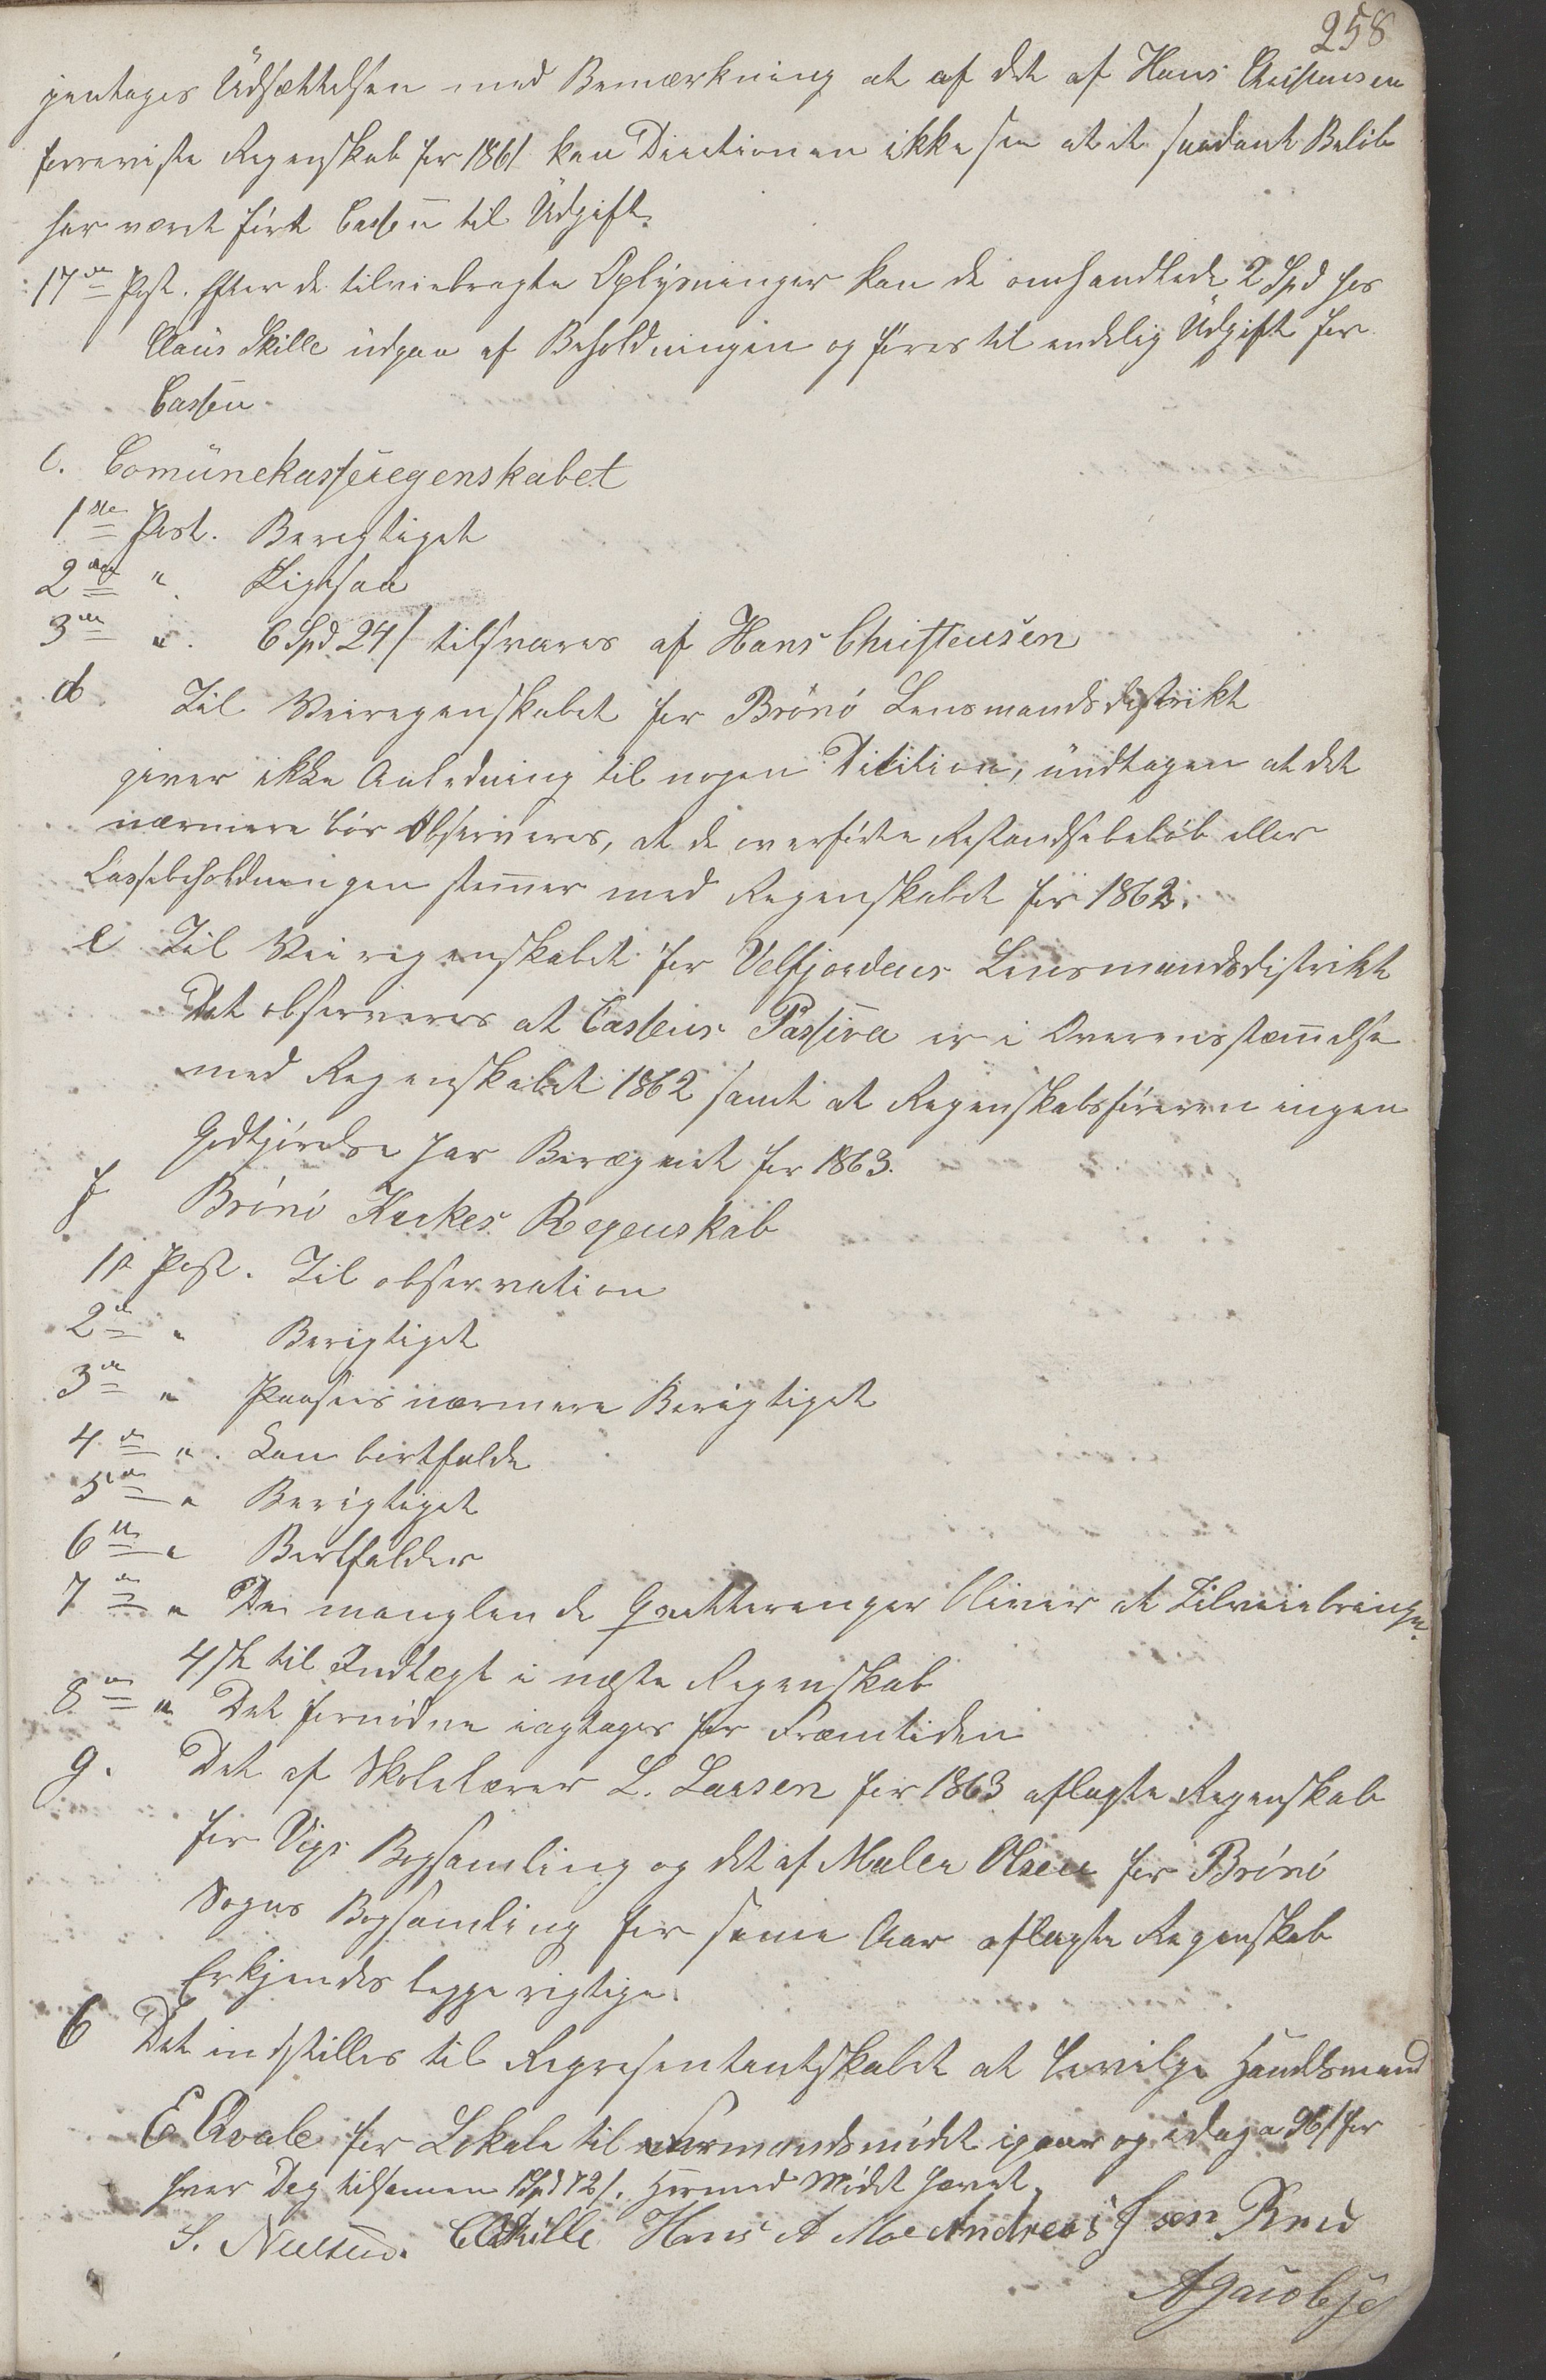 258
gentages Udsættelsen med Bemærkning at af det af Hans Christensen
foreviste Regnskab for 1861 kan Directionen ikke see at et saadant Beløb
har været ført Cassen til Udgift.
17de Post. Efter de tilveiebragte Oplysninger kan de omhandlede 2 Spd hos
Claus Skille udgaa af Beholdningen og føres til endelig Udgift for
Cassen.
c. Comünekasseregenskabet
1ste Post. Berigtiget
2den " Ligesaa
3die " 6 Spd 24 s tilsvares af Hans Christensen
d. Til Veiregenskabet for Brönö Lensmandsdistrikt
giver ikke Anledning til nogen Decition, undtagen at det
nærmere bør Observeres, at de overførte Restandsebeløb eller
Cassebeholdningen stemmer med Regenskabet for 1862.
e Til Veiregenskabet for Velfjordens Lensmandsdistrikt
Det observeres at Cassens Passiva er i Overensstemmelse
med Regenskabet 1862 samt at Regenskabsføreren ingen
Godtgjørelse har Beregnet for 1863.
f Brönö Kirkes Regenskab
1ste Post. Til observation
2den " Berigtiget
3die " Paasees nærmere Berigtiget
4de " Kan bortfalde
5te " Berigtiget
6te " Bortfalder
7de " De manglende Qvitteringer bliver at Tilveiebringe.
4 s til Indtægt i næste Regenskab
8de " Det fornødne iagtages for Fremtiden
g. Det af Skolelærer L. Larsen for 1863 aflagte Regenskab
for Vigs Bogsamling og det af Maler Olsen for Brönö
Sogns Bogsamling for samme Aar aflagte Regenskab
Erkjendes begge rigtige.
6 Det indstilles til Representantskabet at bevilge Handelsmand
E Qvale for Lokale til Formandsmødet igaar og idag a 96 s for
hver Dag tilsammen 1 Spd 72 s. Hermed Mødet hævet.
S. Nielsen. C Skille Hans A Moe Andreas
A Jacobsen